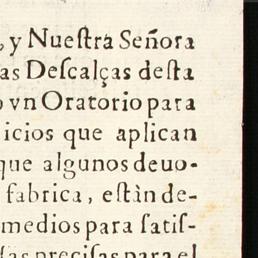 , y Nueſtra Señora
as Deſcalças deſta
o vn Oratorio para
icios que aplican
que algunos deuo-
fabrica, eſtàn de-
medios para ſatiſ-
las preciſas para el